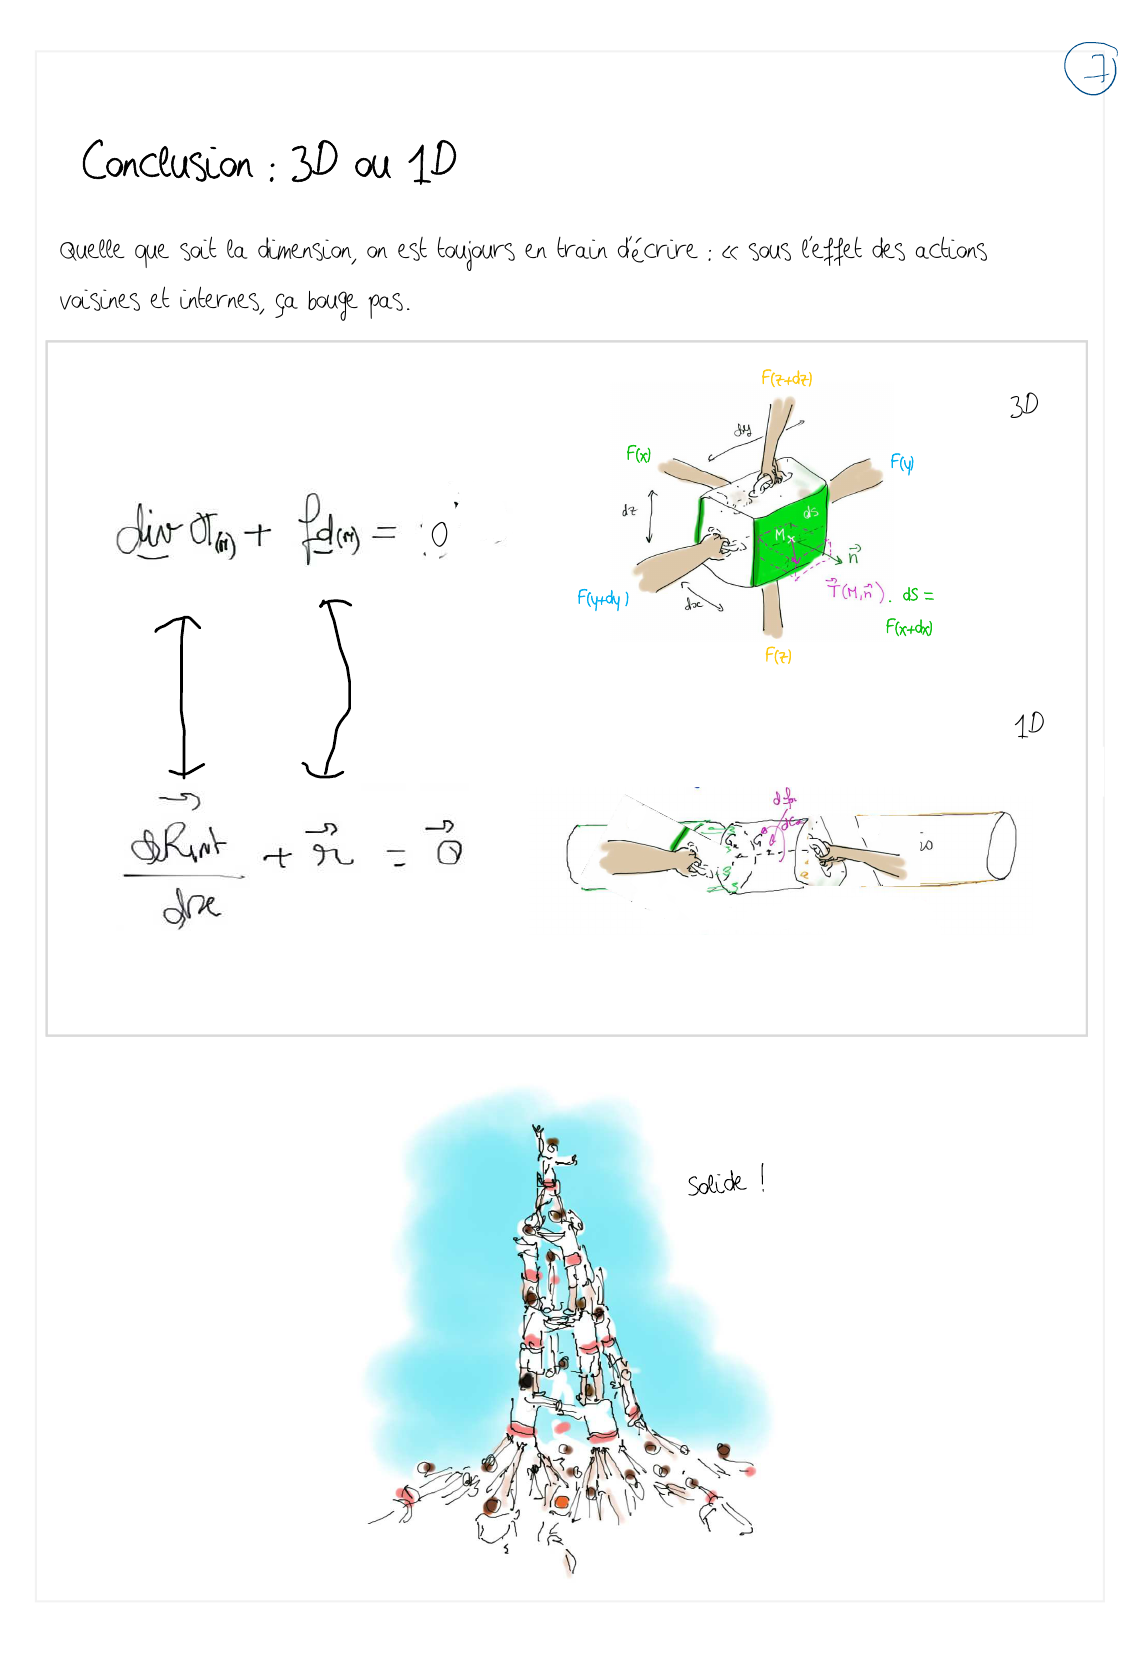 7
Conclusion : 3D ou 1D
Quelle que soit la dimension, on est toujours en train d'écrire : « sous l'effet des actions
voisines et internes, ça bouge pas.
3D
F(z+dz)
dy
F(x)
F(y)
dz
dS
M x
n⃗
div σ(M) + fd(M) = 0
F(y+dy)
dx
T⃗(M,n⃗). dS =
F(x+dx)
F(z)
1D
dRint/dx + r⃗ = 0⃗
Solide !